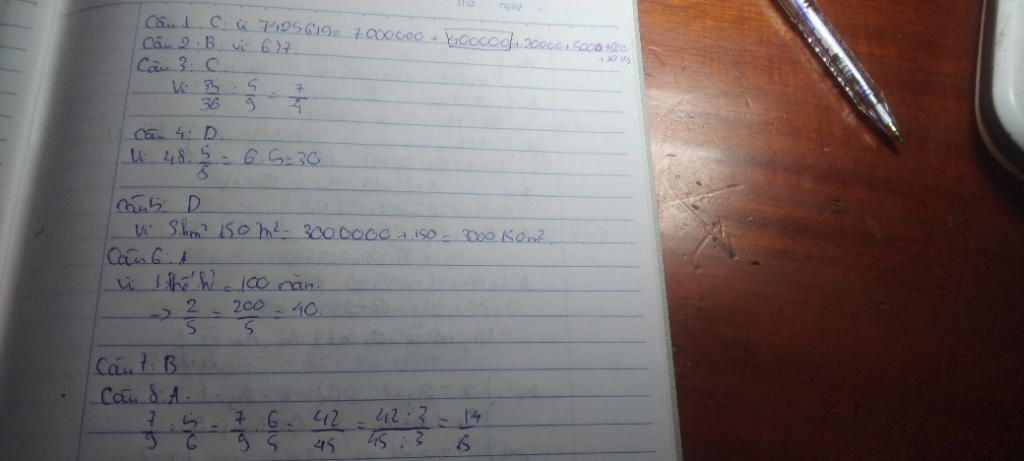 Thứ ngày
Câu 1: C: vì 7425619 = 7000000 + 400000 + 20000 + 5000 + 600
+ 10 + 9
Câu 2: B: vì 6 > 7
Câu 3: C
Vì 35/36 : 5/9 = 7/4
Câu 4: D.
Vì 48 . 5/8 = 6 . 5 = 30
Câu 5: D
Vì 3km² 150 m² = 3000000 + 150 = 3000150m².
Câu 6: A
Vì 1 thế kỉ = 100 năm.
=> 2/5 = 200/5 = 40.
Câu 7: B
Câu 8: A.
7/9 : 5/6 = 7/9 . 6/5 = 42/45 = 42 : 3/45 : 3 = 14/15